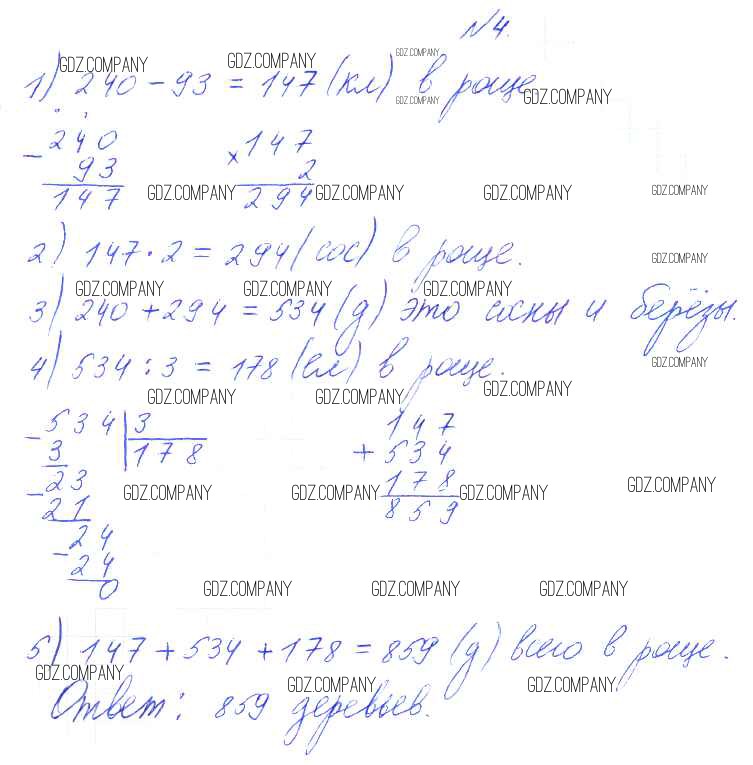 №4.
GDZ.COMPANY GDZ.COMPANY GDZ.COMPANY
1) 240 - 93 = 147 (кл) в роще
GDZ.COMPANY GDZ.COMPANY
- 240 × 147
93 2
147 GDZ.COMPANY 294 GDZ.COMPANY GDZ.COMPANY GDZ.COMPANY
2) 147 · 2 = 294 (сос) в роще. GDZ.COMPANY
GDZ.COMPANY GDZ.COMPANY GDZ.COMPANY
3) 240 + 294 = 534 (д) это сосны и берёзы.
4) 534 : 3 = 178 (ел) в роще. GDZ.COMPANY
GDZ.COMPANY GDZ.COMPANY GDZ.COMPANY
- 534 | 3 147
3 178 + 534
- 23 178
GDZ.COMPANY GDZ.COMPANY GDZ.COMPANY GDZ.COMPANY
21 859
- 24
24
0 GDZ.COMPANY GDZ.COMPANY GDZ.COMPANY
5) 147 + 534 + 178 = 859 (д) всего в роще.
GDZ.COMPANY GDZ.COMPANY GDZ.COMPANY
Ответ: 859 деревьев.